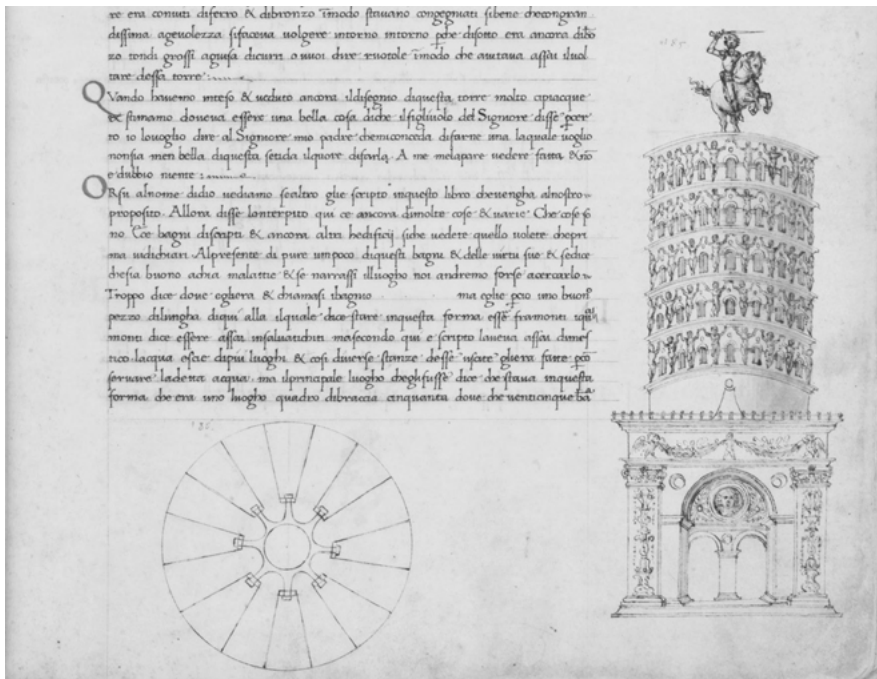 re era conuiti diferro & dibronzo īmodo stauano congegniati sibene checongran
dissima ageuolezza sifaceua uolgere intorno intorno pche disotto era ancora dibrō
zo tondi grossi aguisa dicurri o uuoi dire ruotole īmodo che aiutaua assai iluol
tare dessa torre
QVando hauemo inteso & ueduto ancora ildisegno diquesta torre molto cipiacque
& stimamo doueua essere una bella cosa diche ilfigliuolo del Signore disse pcer
to io louoglio dire al Signore mio padre chemiconceda difarne una laquale uoglio
nonsia men bella diquesta seuida ilquore difarla. A me melapare uedere fatta & nō
e dubbio niente
ORsu alnome didio uediamo sealtro glie scripto inquesto libro cheuengha alnostro
proposito. Allora disse lonterpito qui ce ancora dimolte cose & uarie Che cose so
no Cce bagni discripti & ancora altri hedificij siche uedete quello uolete chepri
ma uidichiari Alpresente di pure umpoco diquesti bagni & delle uirtu sue & sedice
chesia buono achia malattie & se narrassi illuogho noi andremo forse acercarlo
Troppo dice doue egliera & chiamasi ibagno ma eglie pcio uno buon
pezo dilungha diqui alla ilquale dice stare inquesta forma essē framonti iqua
monti dice essere assai insaluatichiti masecondo qui e scripto laueua assai dimes
tico lacqua escie dipiu luoghi & cosi diuerse stanze desse uscite gliera fatte pcō
seruare ladetta acqua ma ilprincipale luogho chegli fusse dice che staua inquesta
forma che era uno luogho quadro dibraccia cinquanta doue che uenticinque bā